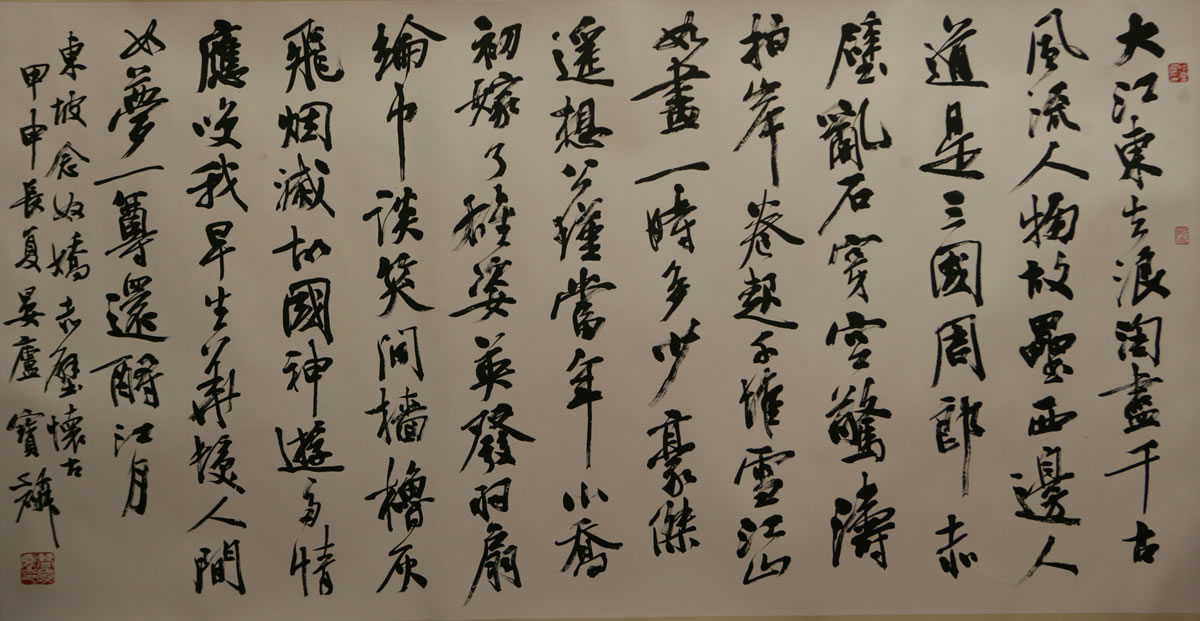 大江東去浪淘盡千古
風流人物故壘西邊人
道是三國周郎赤
壁亂石穿空驚濤
拍岸卷起千堆雪江山
如畫一時多少豪傑
遥想公瑾當年小喬
初嫁了雄姿英發羽扇
綸巾談笑間檣櫓灰
飛烟滅故國神遊多情
應笑我早生華髮人間
如夢一尊還酹江月
東坡念奴嬌赤壁懷古
甲申長夏晏廬寶